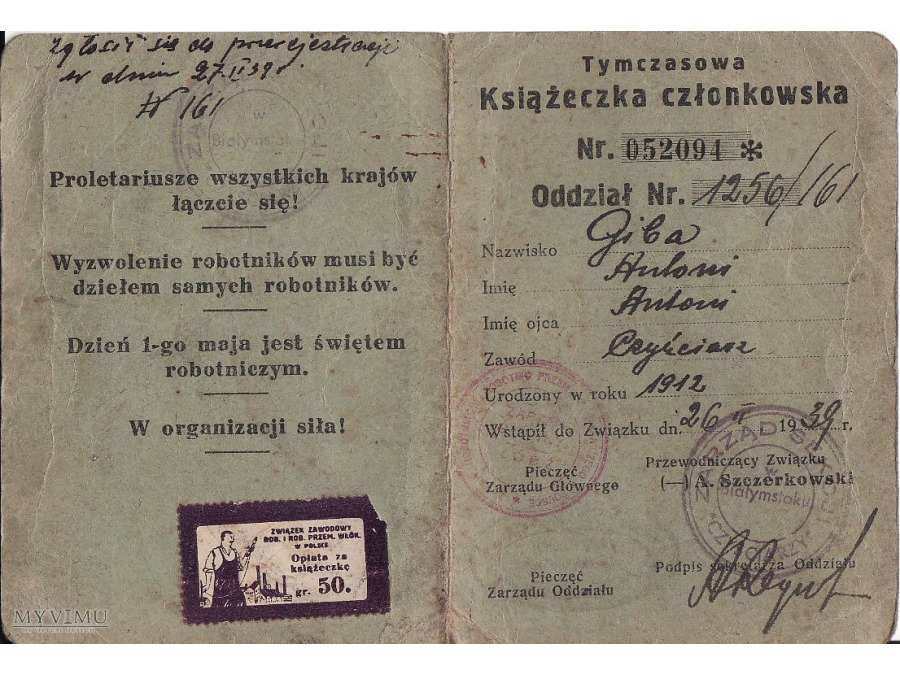 zgłosić się do przerejestracji
w dniu 27.II 39 r.
N 161
w
Białymstoku
Proletariusze wszystkich krajów
łączcie się!
Wyzwolenie robotników musi być
dziełem samych robotników.
Dzień 1-go maja jest świętem
robotniczym.
W organizacji siła!
ZWIĄZEK ZAWODOWY
ROB. I ROB. PRZEM. WŁÓK.
W POLSCE
Opłata za
książeczkę
gr. 50.
MYVIMU
Tymczasowa
Książeczka członkowska
Nr. 052094 *
Oddział Nr. 1256/161
Nazwisko Giba
Imię Antoni
Imię ojca Antoni
Zawód Czyściarz
Urodzony w roku 1912
Wstąpił do Związku dn. 26 II 1939 r.
Pieczęć
Zarządu Głównego
Przewodniczący Związku
(—) A. Szczerkowski
ZARZĄD
w
Białymstoku
Pieczęć
Zarządu Oddziału
Podpis sekretarza Oddziału